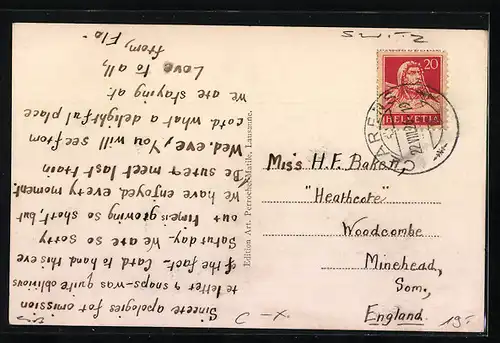 Switz
Sincere apologies for omission
te letter & snaps - was quite oblivious
of the fact - Card to hand this eve
Saturday - We are so sorry
our time is growing so short, but
We have enjoyed every moment.
Be sure & meet last train
Wed. eve, You will see from
card what a delightful place
we are staying at.
Love to all,
from, Flo -
Edition Art. Perrochet-Matile, Lausanne.
20
HELVETIA
CLARENS
Miss H. F. Baker,
"Heathcote"
Woodcombe
Minehead,
Som,
England
C - X.
19.-